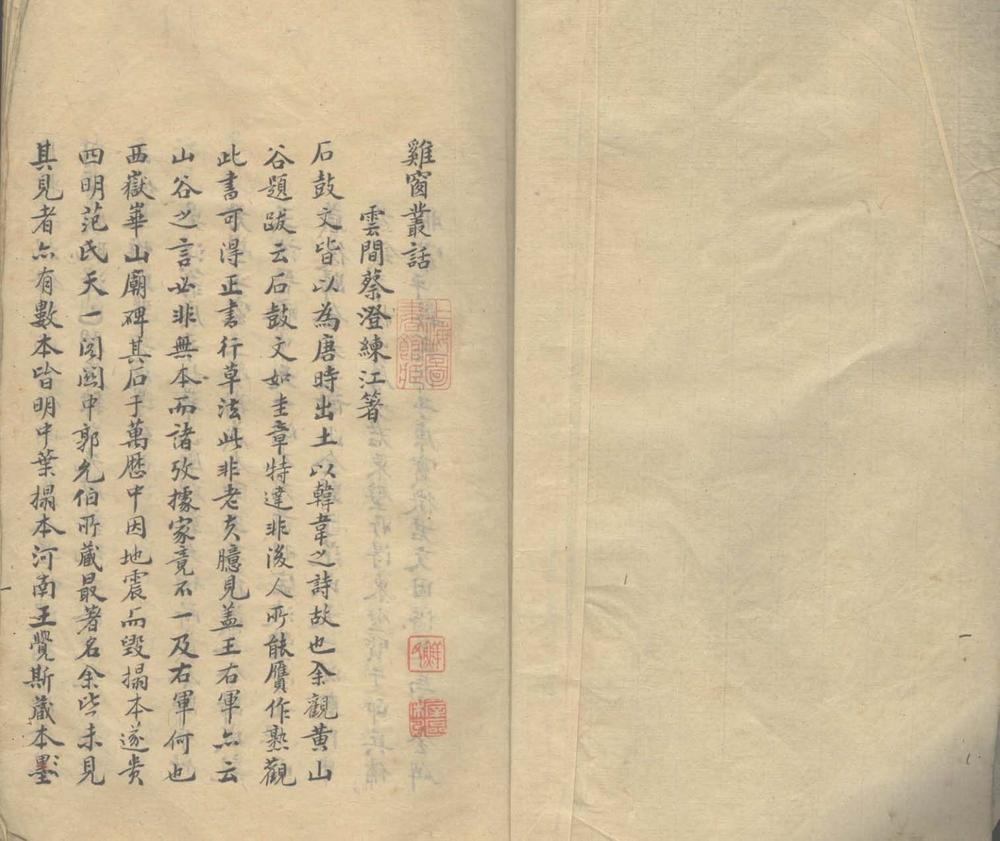 雞窗叢話
雲間蔡澄練江著
石鼓文皆以為唐時出土以韓韋之詩故也余觀黄山
谷題跋云石鼓文如圭章特達非後人所能贗作熟觀
此書可得正書行草法此非老夫臆見盖王右軍亦云
山谷之言必非無本而諸攷據家竟不一及右軍何也
西嶽崋山廟碑其石于萬厯中因地震而毀搨本遂貴
四明范氏天一閣關中郭允伯所藏最著名余皆未見
其見者亦有數本皆明中葉搨本河南王覺斯藏本墨
上海圖書館藏